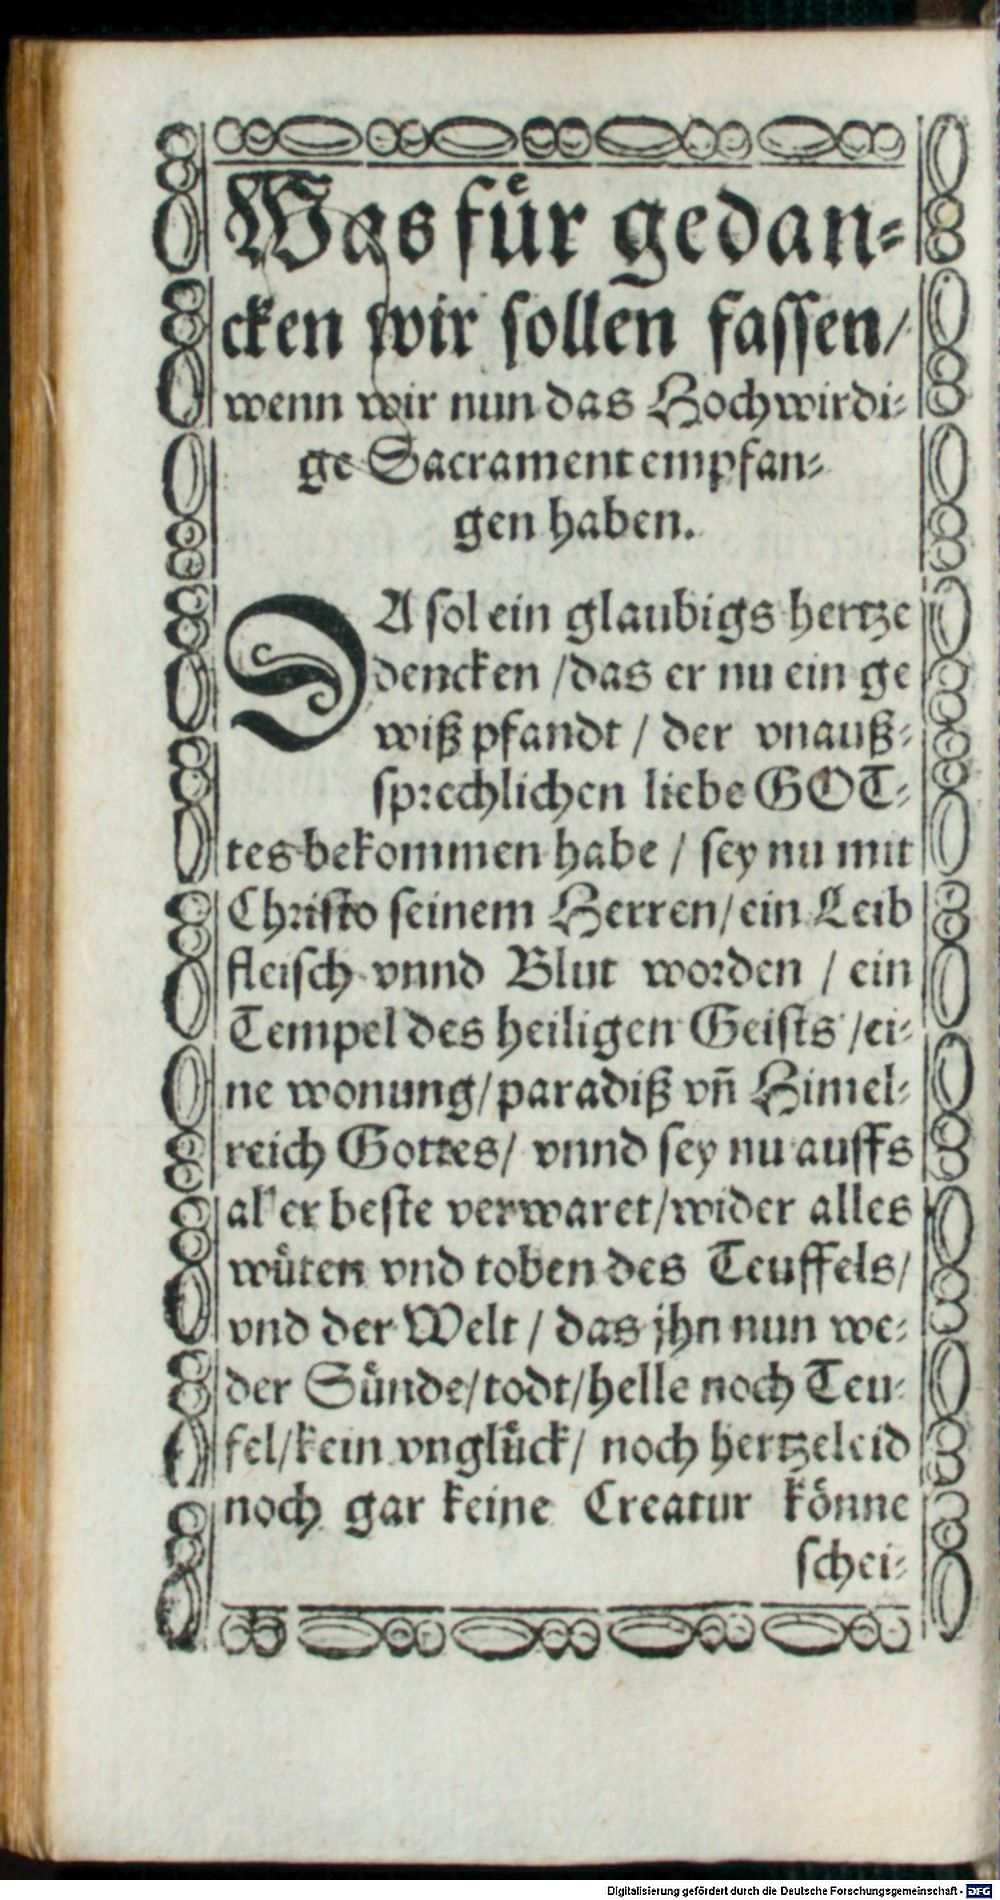 Was für gedan-
cken wir sollen fassen/
wenn wir nun das Hochwirdi-
ge Sacrament empfan-
gen haben.
DA sol ein glaubigs hertze
dencken /das er nu ein ge
wiß pfandt / der vnauß-
sprechlichen liebe GOT-
tes bekommen habe / sey nu mit
Christo seinem Herren/ein Leib
fleisch vnnd Blut worden / ein
Tempel des heiligen Geists /ei-
ne wonung/paradiß vñ Himel-
reich Gottes/ vnnd sey nu auffs
aller beste verwaret/wider alles
wüten vnd toben des Teuffels/
vnd der Welt / das jhn nun we-
der Sünde/todt/helle noch Teu-
fel/kein vnglück/ noch hertzeleid
noch gar keine Creatur könne
schei-
Digitalisierung gefördert durch die Deutsche Forschungsgemeinschaft - DFG